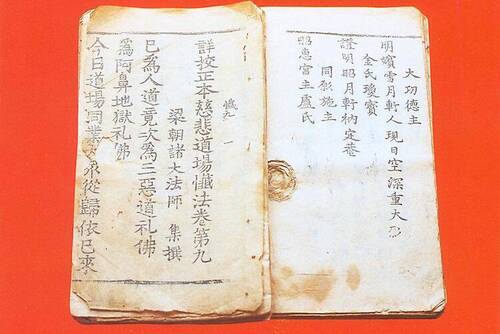 大功德主
明嬪雪月軒人現日空深重大
金氏瓊賓
證明照月軒衲定菴
同施主
昭惠宮主盧氏
懺九 一
詳校正本慈悲道場懺法卷第九
梁朝諸大法師 集撰
已爲人道竟次爲三惡道礼佛
爲阿鼻地獄礼佛
今日道場同業大衆從歸依已來